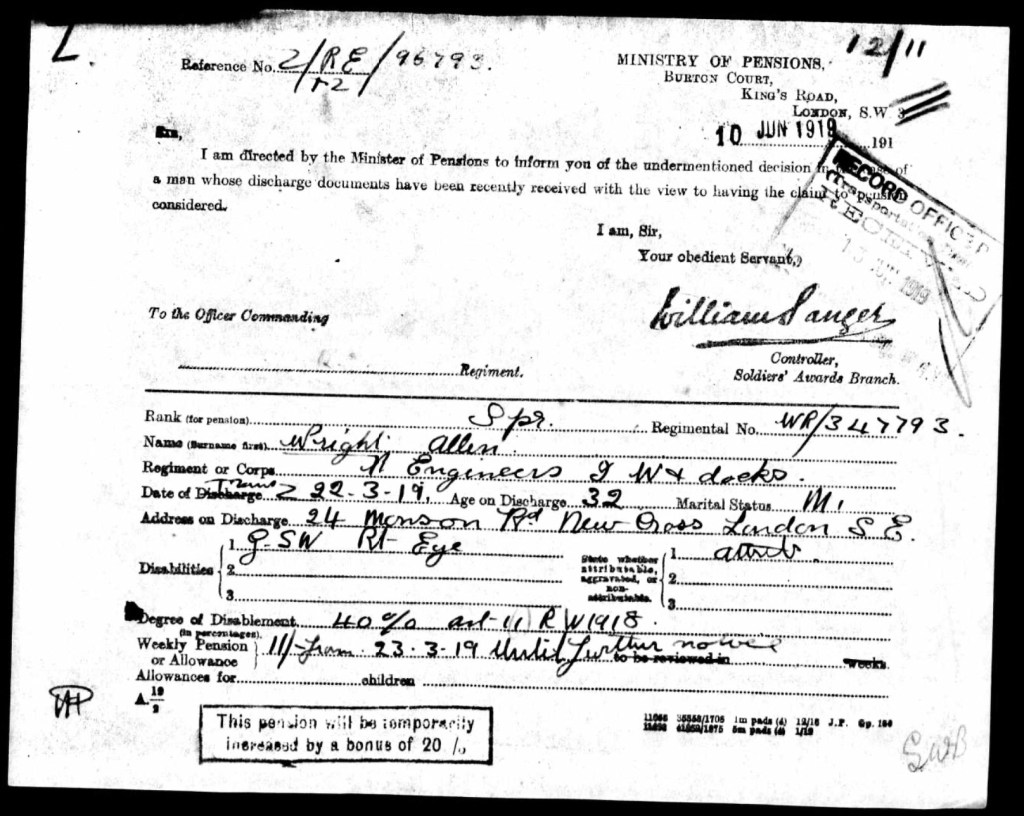 12/11
Reference No. 2/RE/96793.
r2
MINISTRY OF PENSIONS,
BURTON COURT,
KING'S ROAD,
LONDON, S.W. 3
10 JUN 1919 191
Sir,
I am directed by the Minister of Pensions to inform you of the undermentioned decision in the case of
a man whose discharge documents have been recently received with the view to having the claim to pension
considered.
RECORD OFFICER
RECEIVED
13 JUN 1919
I am, Sir,
Your obedient Servant,
William Sanger
To the Officer Commanding
Controller,
Soldiers' Awards Branch.
Regiment.
Rank (for pension) Spr. Regimental No. WR/347793.
Name (Surname first) Wright Allen.
Regiment or Corps R Engineers I W & docks.
Date of Discharge Trans 22-3-19. Age on Discharge 32 Marital Status M.
Address on Discharge 24 Monson Rd New Cross London S E.
Disabilities 1. G S W Rt Eye State whether attributable, aggravated, or non-attributable. 1. attrib
2. 2.
3. 3.
Degree of Disablement 40% art 1(1) R W 1918.
(in percentages).
Weekly Pension or Allowance 11/- from 23-3-19 Until further notice to be reviewed in weeks.
Allowances for children
A. 19/9
This pension will be temporarily
increased by a bonus of 20 %
1m pads (d) 12/18 J.P. Gp. 164
5m pads (d) 1/19
SWB